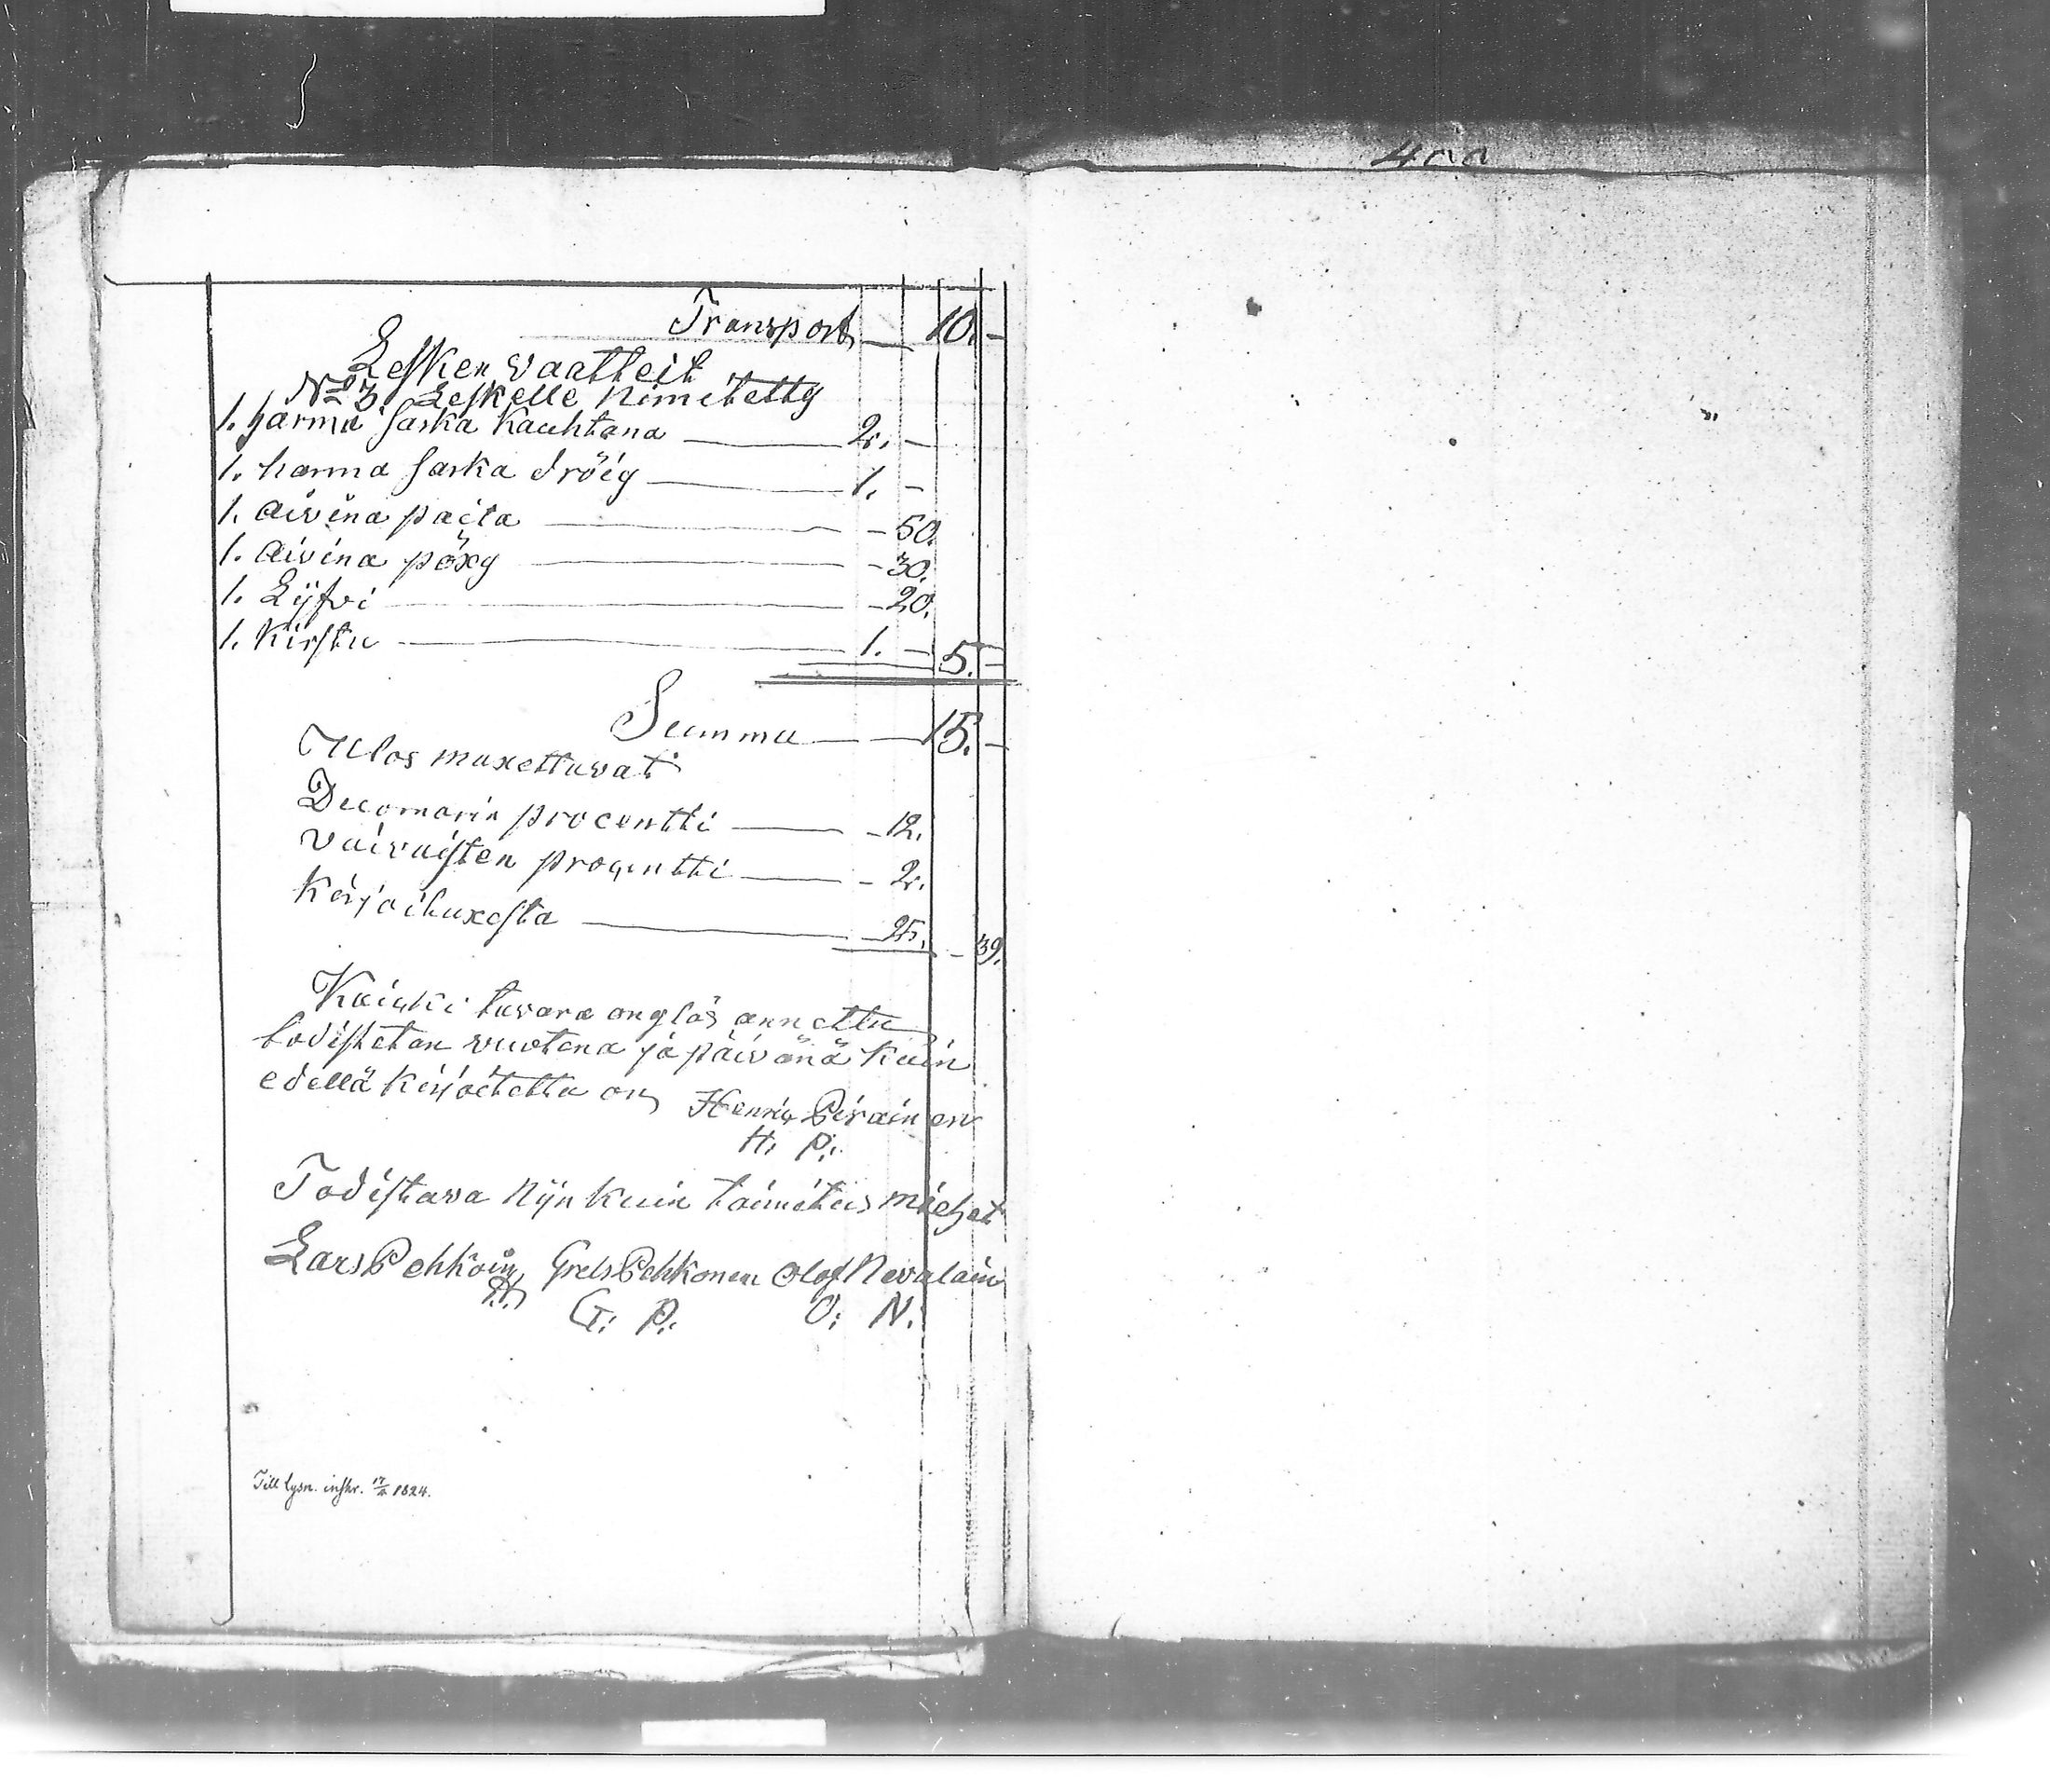 400
Transport — 10. —
Lesken vaatteit
No 3 Leskelle Nimitetty
1. harma sarka Kauhtana — 2. —
1. harma sarka dröig — 1. —
1. aivina paita — 50.
1. aivina pöxy — 30.
1. Lijvi — 20.
1. Kirstu — 1. — 5. —
Summa — 15. —
Ulos maxettavat
Duomarin procentti — 12.
vaivaisten procentti — 2.
Kirjoituxesta — 25. — 39.
Kaicki tavara on ylös annettu
todistetan vuotena ja päivänä kuin
edellä kirjoitettu on Henric Pirainen
H. P.
Todistava Nijn kuin toimitus miehet
Lars Pehkoin Grels Pehkonen Olof Nevalain
G. P. O. N.
Till lysn. inskr. 1824.